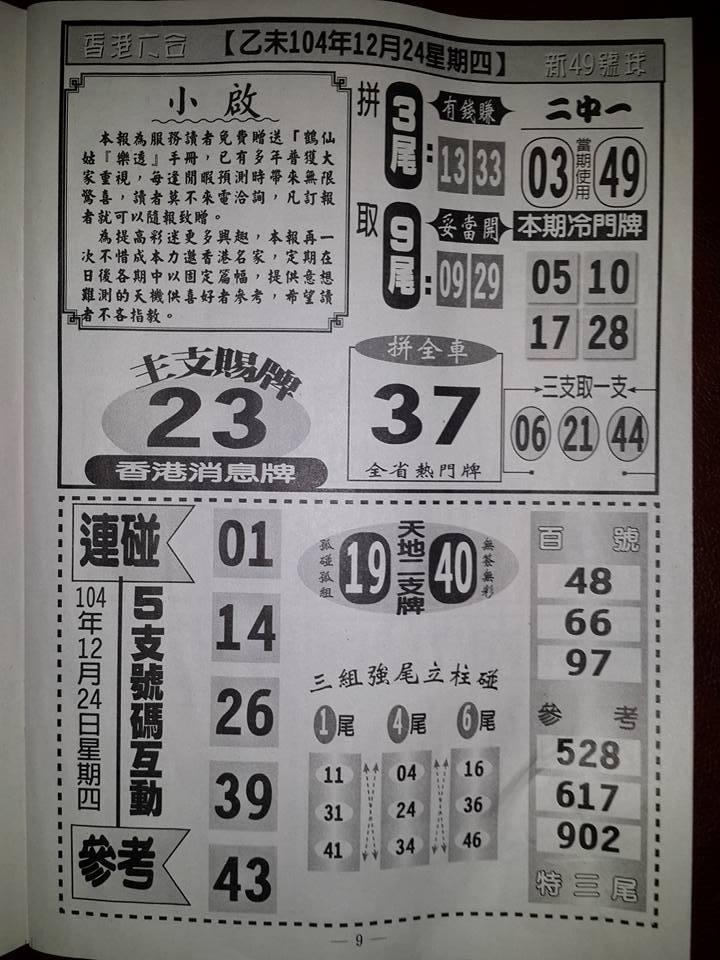 香港六合
【乙未104年12月24星期四】
新49號球
小啟
本報為服務讀者免費贈送『鶴仙
姑『樂透』手冊，已有多年普獲大
家重視，每逢閒暇預測時帶來無限
驚喜，讀者莫不來電洽詢，凡訂報
者就可以隨報致贈。
為提高彩迷更多興趣，本報再一
次不惜成本力邀香港名家，定期在
日後各期中以固定篇幅，提供意想
難測的天機供喜好者參考，希望讀
者不吝指教。
拼取
3尾：
有錢賺
13 33
9尾：
妥當開
09 29
二中一
03
當期使用
49
本期冷門牌
05 10
17 28
主支賜牌
23
香港消息牌
拼全車
37
全省熱門牌
三支取一支
06 21 44
連碰
104年12月24日星期四
5支號碼互動
參考
01
14
26
39
43
孤碰孤組
19
天地二支牌
40
無簽無彩
三組強尾立柱碰
1尾 4尾 6尾
11 04 16
31 24 36
41 34 46
百號
48
66
97
參考
528
617
902
特三尾
— 9 —